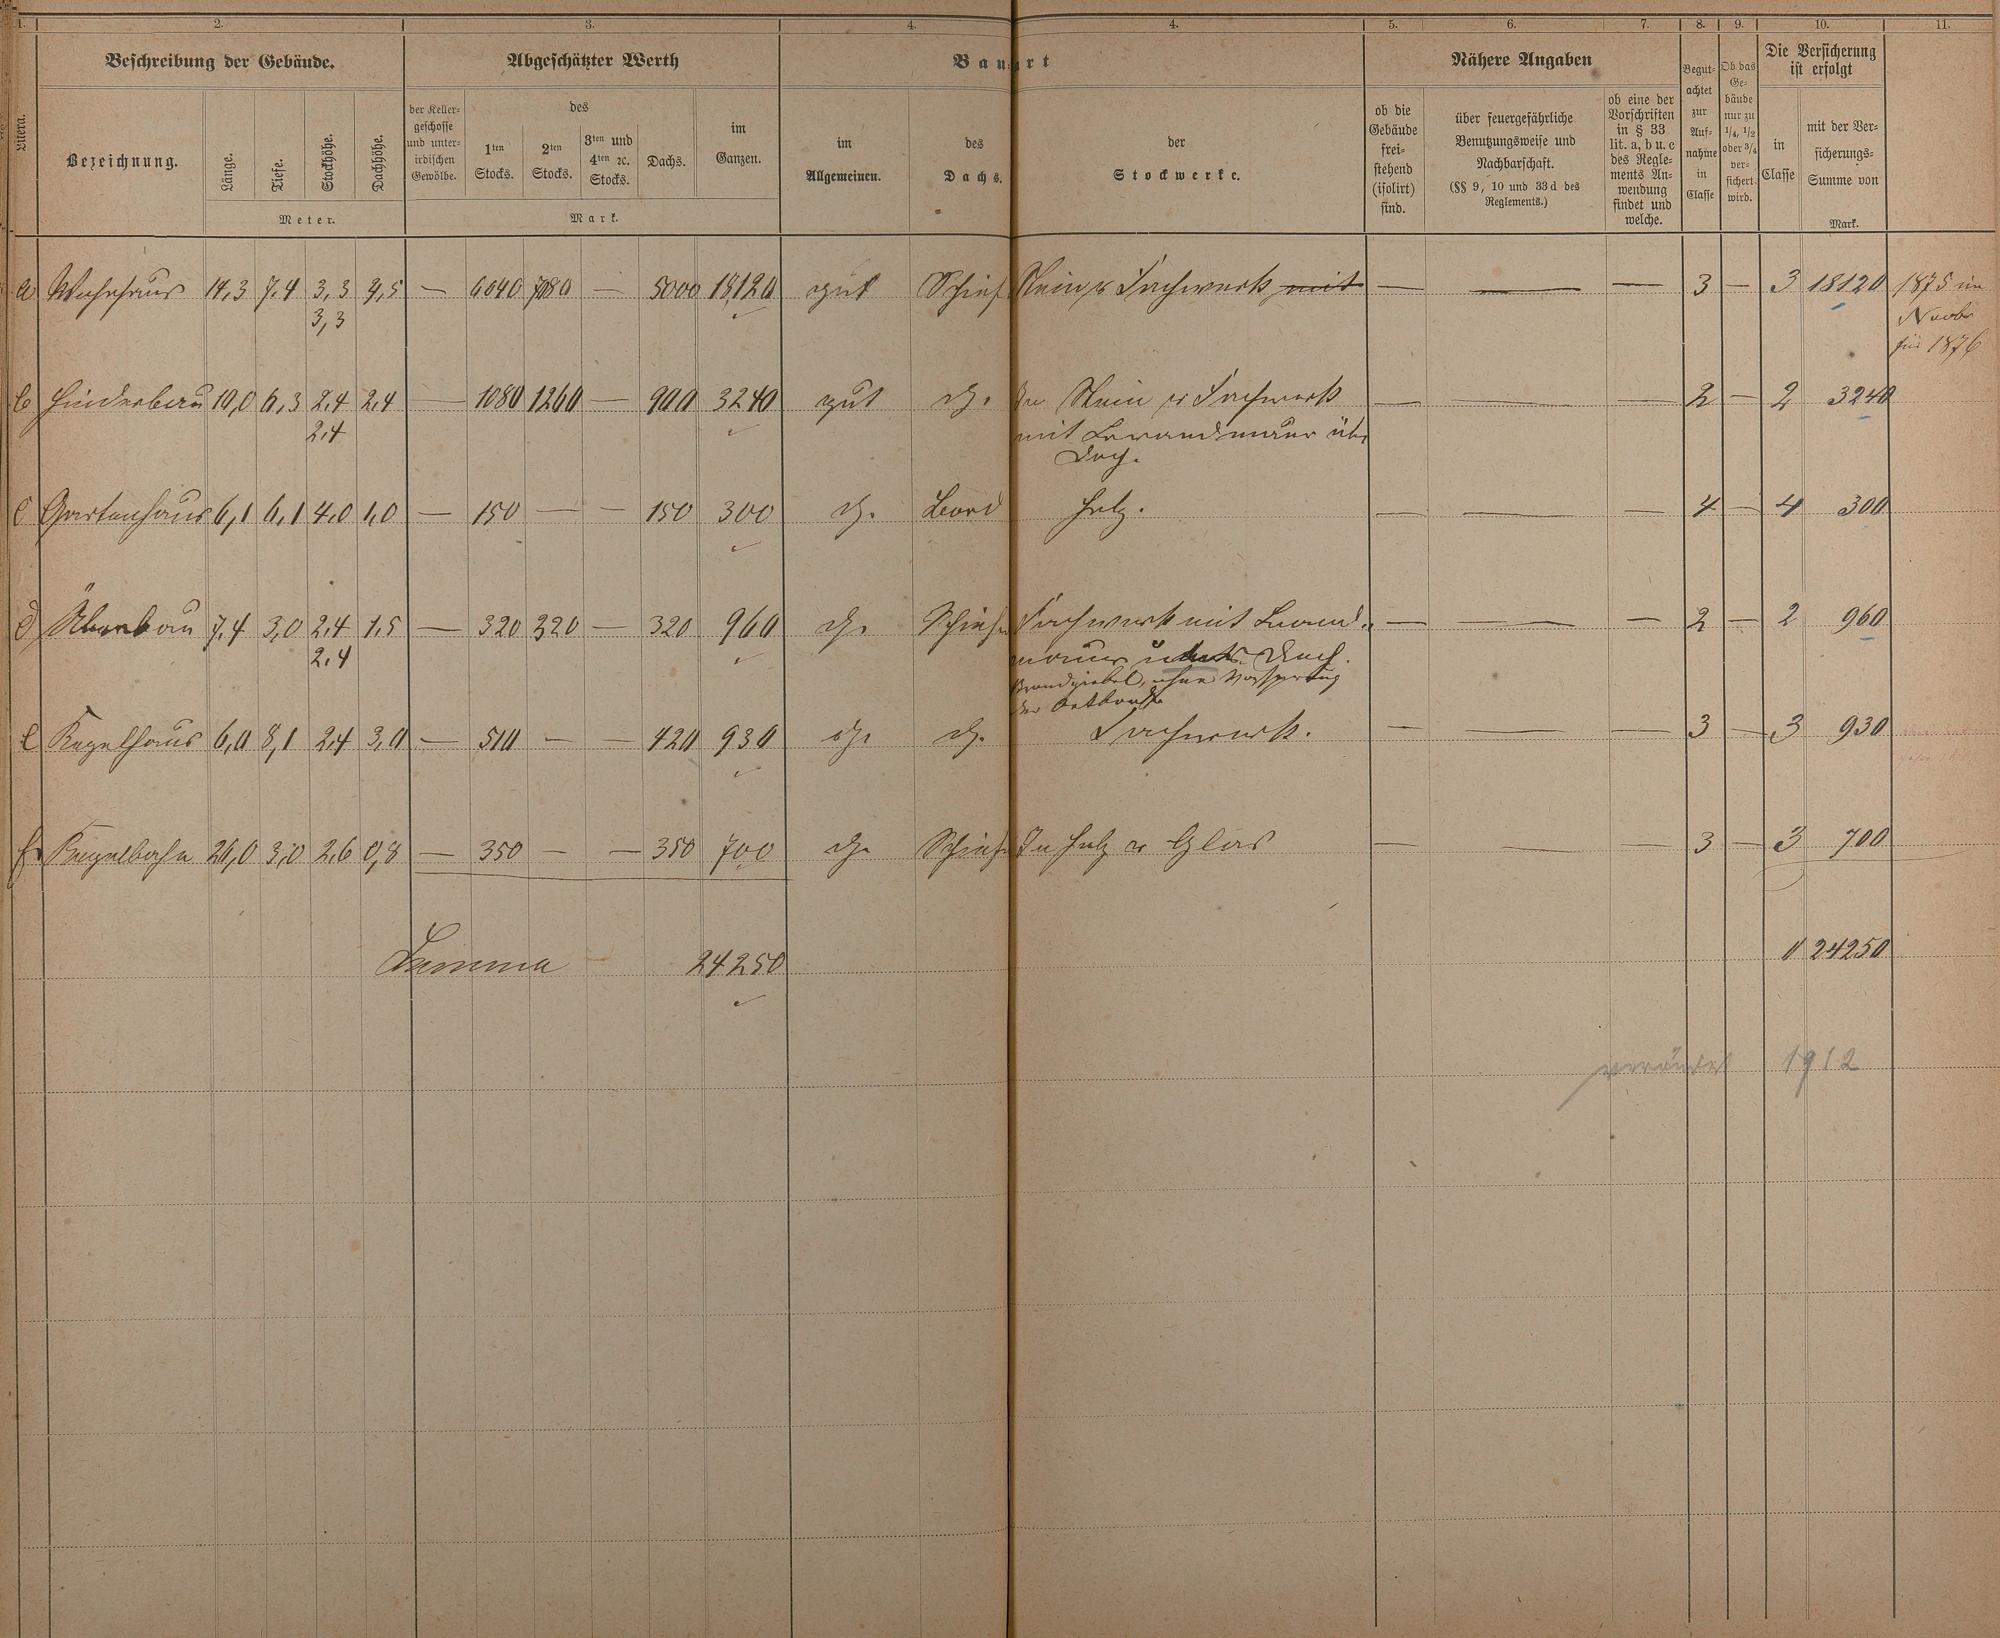 1. 2. 3. 4. 4. 5. 6. 7. 8. 9. 10. 11.
Beschreibung der Gebäude. Abgeschätzter Werth Bauart Nähere Angaben Die Versicherung
ist erfolgt
Litera.
Bezeichnung.
Länge. Tiefe. Stockhöhe. Dachhöhe.
Meter.
der Keller-
geschosse
und unter-
irdischen
Gewölbe.
des
1ten
Stocks.
2ten
Stocks.
3ten und
4ten ꝛc.
Stocks.
Dachs.
im
Ganzen.
Mark.
im
Allgemeinen.
des
Dachs.
der
Stockwerke.
ob die
Gebäude
frei-
stehend
(isolirt)
sind.
über feuergefährliche
Benutzungsweise und
Nachbarschaft.
(§§ 9, 10 und 33d des
Reglements.)
ob eine der
Vorschriften
in § 33
lit. a, b u. c
des Regle-
ments An-
wendung
findet und
welche.
Begut-
achtet
zur
Auf-
nahme
in
Classe
Ob das
Ge-
bäude
nur zu
1/4, 1/2
oder 3/4
ver-
sichert
wird.
in
Classe
mit der Ver-
sicherungs-
Summe von
Mark.
a Wohnhaus 14,3 7.4 3,3 4,5 — 6040 7080 — 5000 18,120 gut Schief Stein u Fachwerk mit — — — 3 — 3 18120 1875 im
3,3 Novbr
für 1876
b Hinderbau 10,0 6,3 2.4 2,4 — 1080 1260 — 900 3240 gut do. In Stein u Fachwerk — — — 2 — 2 3240
2.4 mit Brandmauer über
Dach.
c Gartenhaus 6,1 6,1 4,0 1,0 — 150 — — 150 300 do. Bord Holz. — — — 4 — 4 300
d Überbau 7,4 3,0 2.4 1.5 — 320 320 — 320 960 do. Schiefer Fachwerk mit Brand- — — — 2 — 2 960
2.4 mauer über Dach.
Brandgiebel, ohne Vorsprung
e Kegelhaus 6,0 8,1 2,4 3,0 — 510 — — 420 930 do. do. Fachwerk. — — — 3 — 3 930
f. Kegelbahn 26,0 3,0 2,6 0,8 — 350 — — 350 700 do. Schiefer In Holz u Glas — — — 3 — 3 700
Summa 24250 24250
verändert 1912